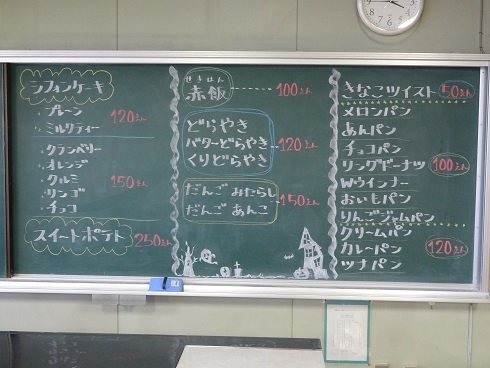 シフォンケーキ
・プレーン
・ミルクティー
120えん
・クランベリー
・オレンジ
・クルミ
・リンゴ
・チョコ
150えん
スイートポテト 250えん
せきはん
赤飯 100えん
どらやき
バターどらやき
くりどらやき
120えん
だんご みたらし
だんご あんこ
150えん
きなこツイスト 50えん
メロンパン
あんパン
チョコパン
リングドーナツ
Wウインナー
おいもパン
りんごジャムパン
100えん
クリームパン
カレーパン
ツナパン
120えん